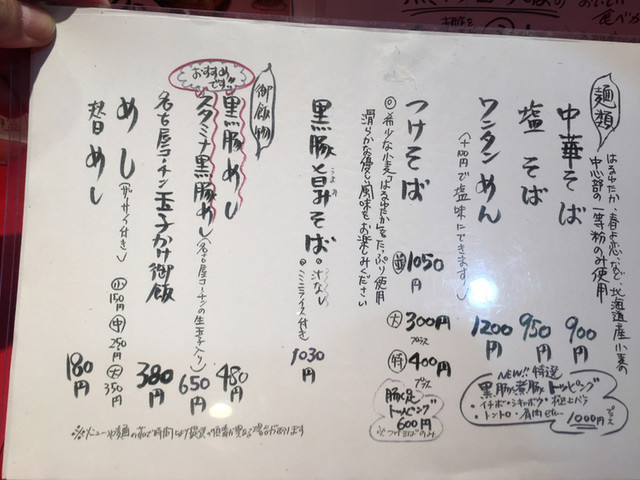 麺類
はるゆたか・春よ恋など、北海道産小麦の
中心部の一等粉のみ使用
中華そば 900円
塩そば 950円
ワンタンめん 1200円
(+100円で塩味にできます)
NEW!! 特選
黒豚煮豚トッピング
・トントロ・肩肉etc… 1000円プラス
つけそば 並1050円
大300円プラス
特400円プラス
◎希少な小麦「はるゆたか」をたっぷり使用
滑らかな優しい風味をお楽しみください
トッピング
600円
黒豚旨みそば 1030円
◎汁なし
◎ミニライス付き
御飯物
おすすめ
です!!
黒豚めし 480円
スタミナ黒豚めし(名古屋コーチンの生玉子入り) 650円
名古屋コーチン玉子かけ御飯 380円
めし(ザーサイ付き) 小150円 中250円 大350円
替めし 180円